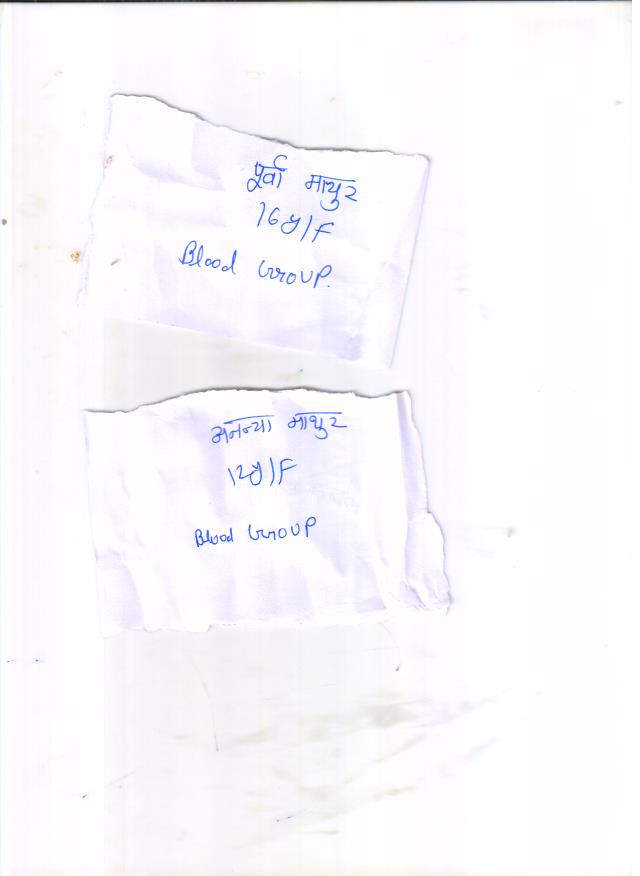 पूर्वा माथुर
16y/F
Blood Group.
अनन्या माथुर
12y/F
Blood Group